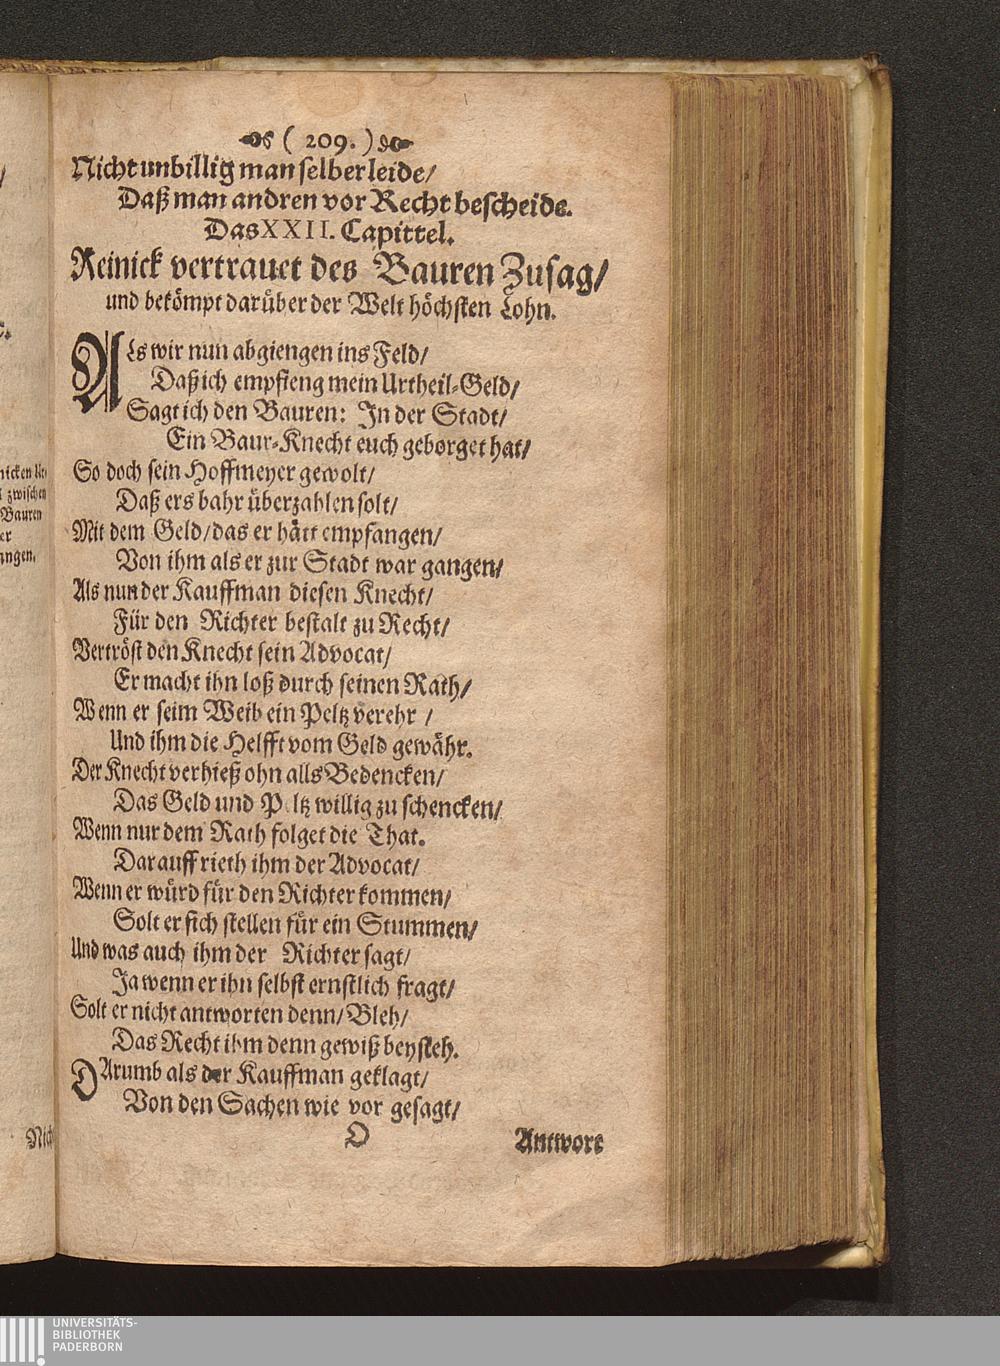 ( 209. )
Nicht unbillig man selber leide/
Daß man andren vor Recht bescheide.
Das XXII. Capittel.
Reinick vertrauet des Bauren Zusag/
und bekömpt darüber der Welt höchsten Lohn.
ALs wir nun abgiengen ins Feld/
Daß ich empfieng mein Urtheil-Geld/
Sagt ich den Bauren: In der Stadt/
Ein Baur-Knecht euch geborget hat/
So doch sein Hoffmeyer gewolt/
Daß ers bahr überzahlen solt/
Mit dem Geld/das er hätt empfangen/
Von ihm als er zur Stadt war gangen/
Als nun der Kauffman diesen Knecht/
Für den Richter bestalt zu Recht/
Vertröst den Knecht sein Advocat/
Er macht ihn loß durch seinen Rath/
Wenn er seim Weib ein Peltz verehr /
Und ihm die Helfft vom Geld gewähr.
Der Knecht verhieß ohn alls Bedencken/
Das Geld und P ltz willig zu schencken/
Wenn nur dem Rath folget die That.
Darauff rieth ihm der Advocat/
Wenn er würd für den Richter kommen/
Solt er sich stellen für ein Stummen/
Und was auch ihm der Richter sagt/
Ja wenn er ihn selbst ernstlich fragt/
Solt er nicht antworten denn/ Bleh/
Das Recht ihm denn gewiß beysteh.
DArumb als der Kauffman geklagt/
Von den Sachen wie vor gesagt/
O Antwort
nicken Ur-
zwischen
Bauren
er
ngen.
Nich
UNIVERSITÄTS-
BIBLIOTHEK
PADERBORN